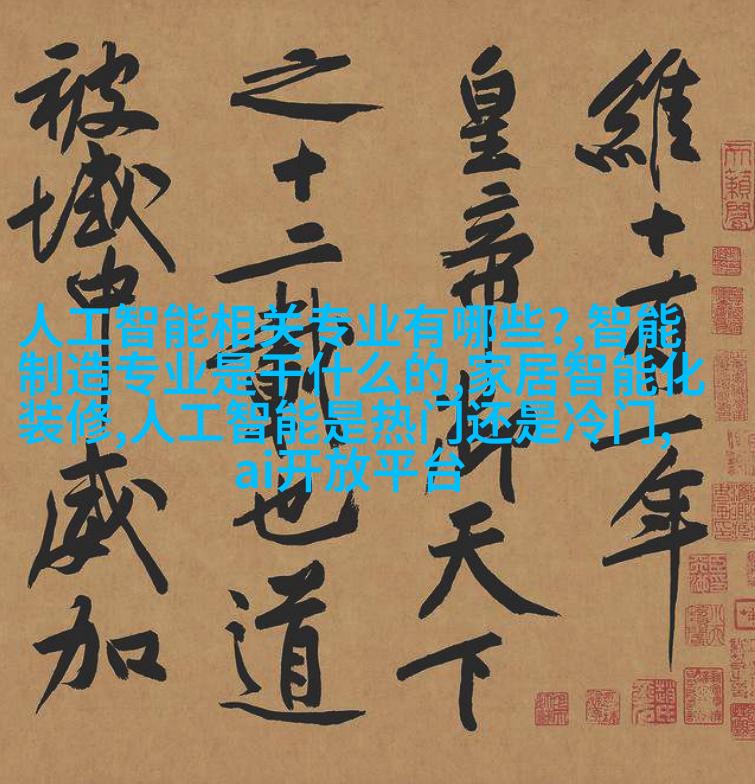 維十有一年
皇帝御天下
之十二載也道
被域中威加
人工智能相关专业有哪些?,智能
制造专业是干什么的,家居智能化
装修,人工智能是热门还是冷门,
ai开放平台